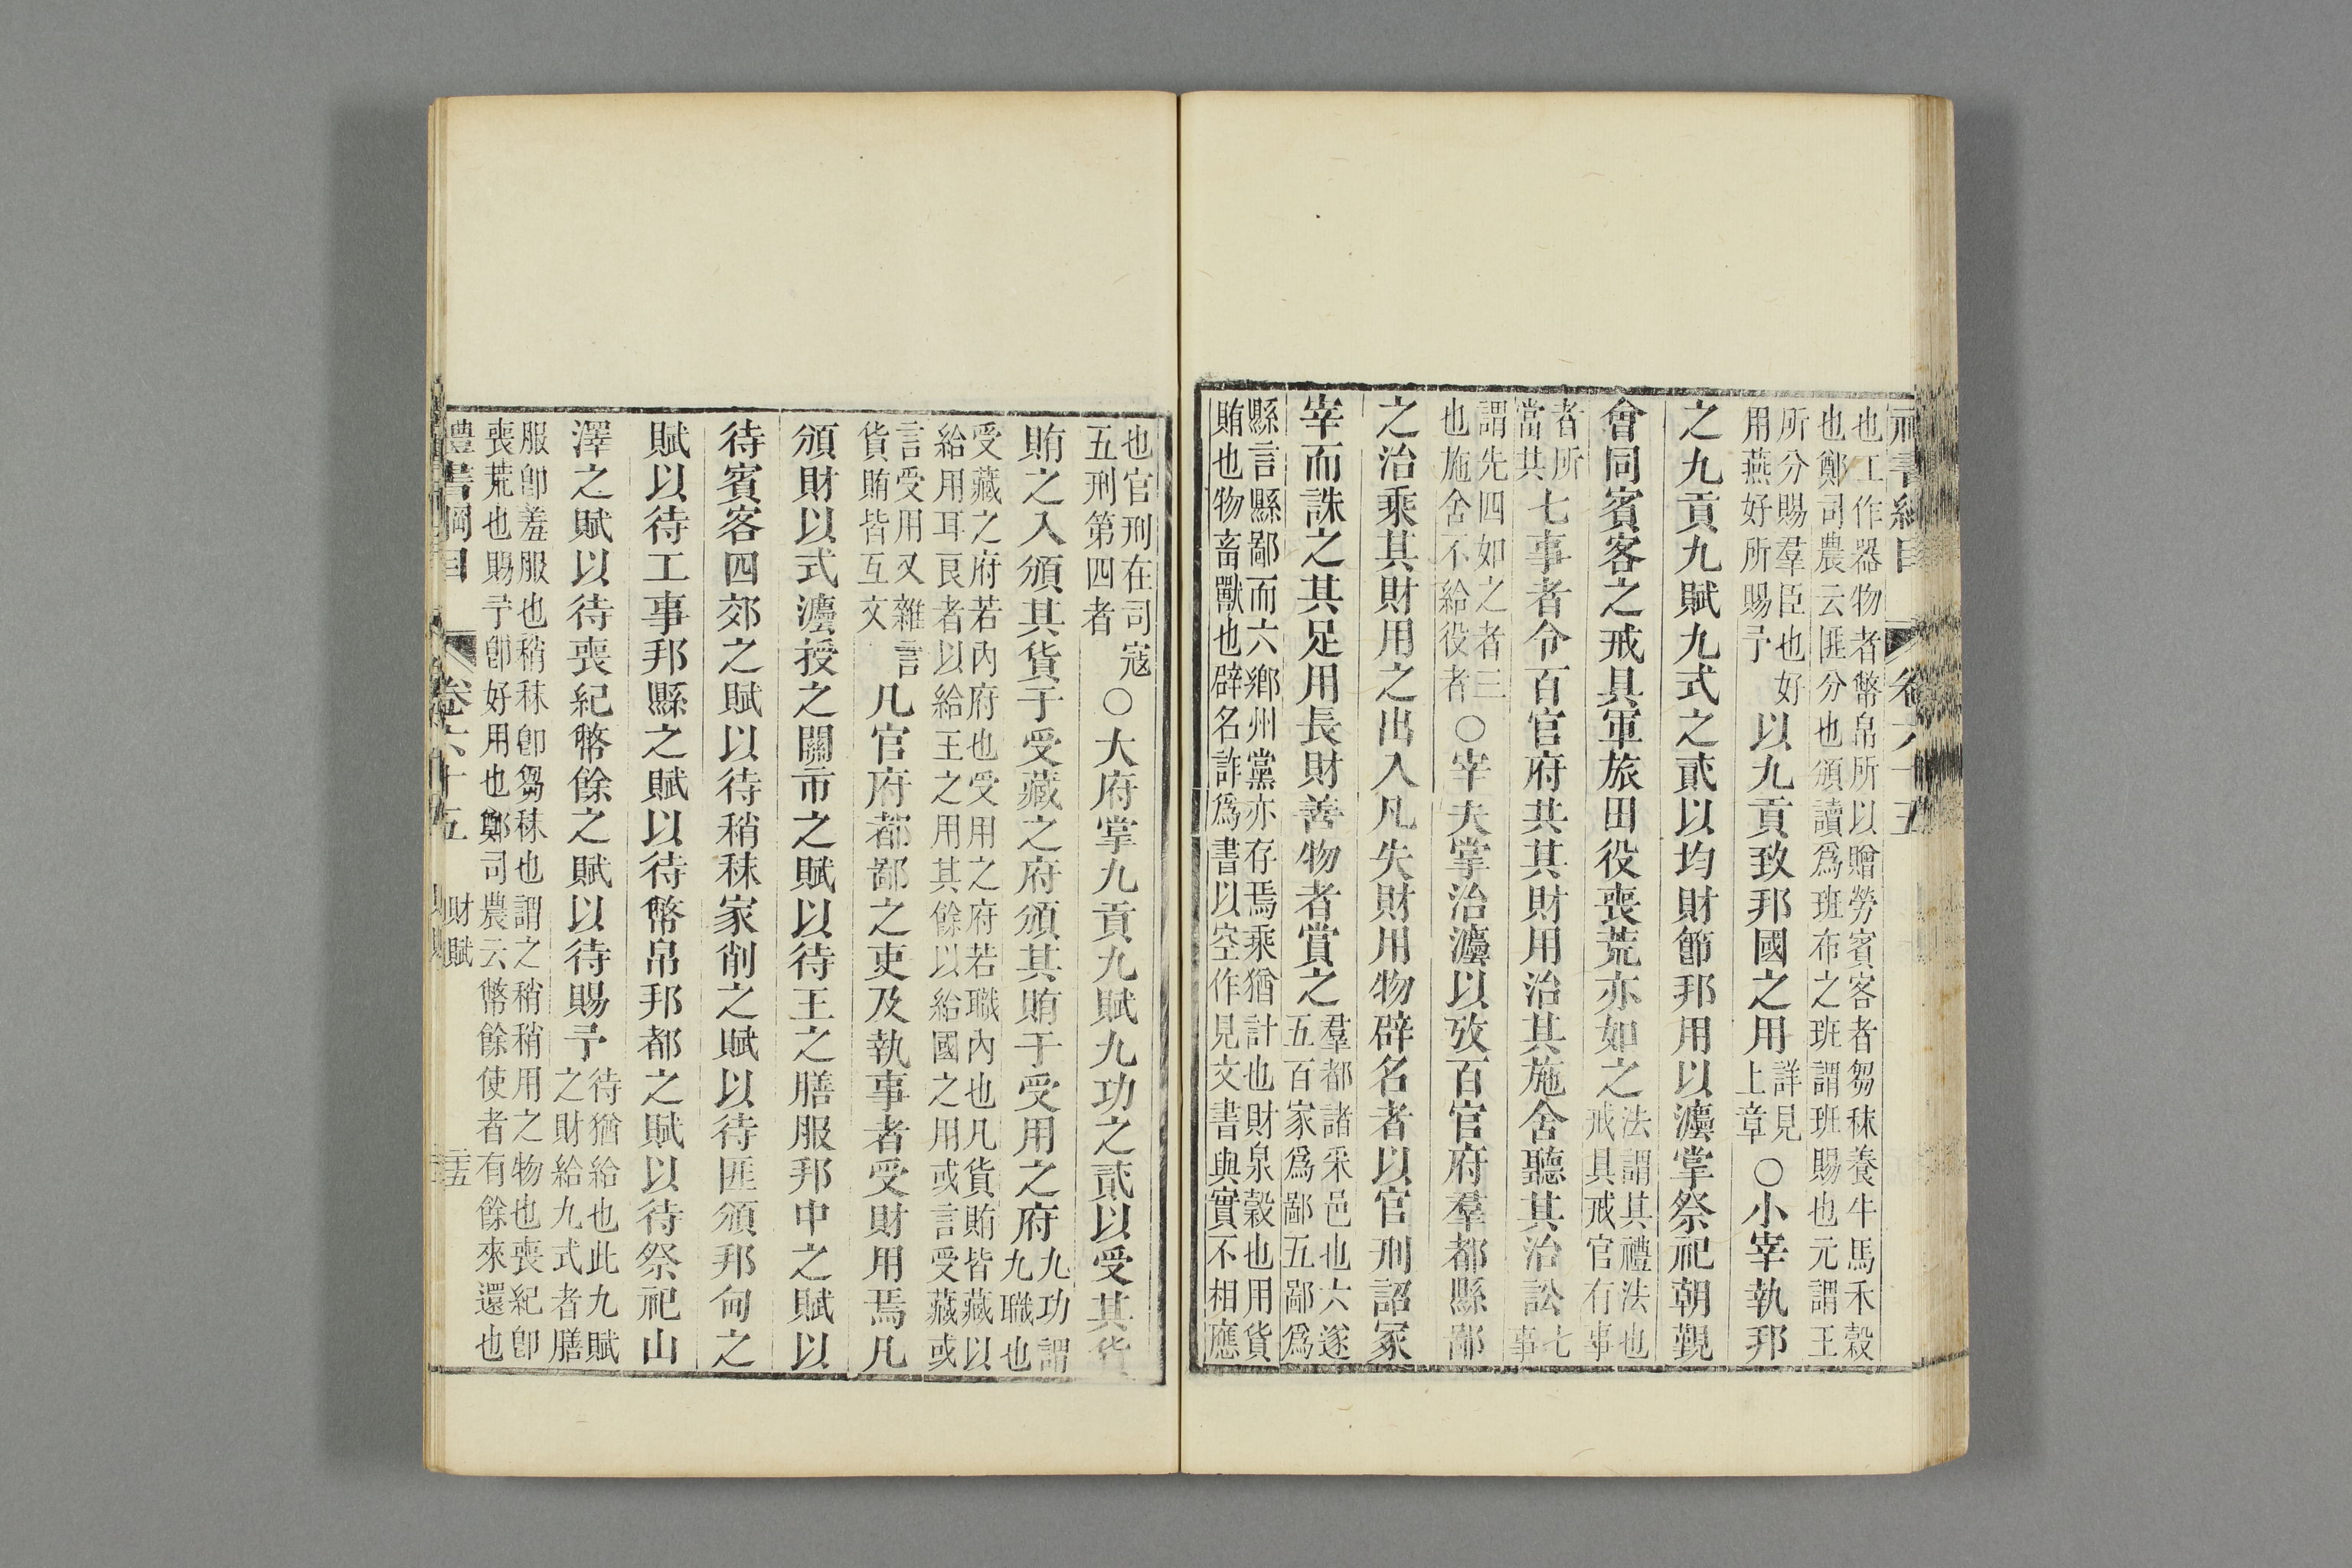 禮書綱目 卷六十五
也工作器物者幣帛所以贈勞賓客者芻秣養牛馬禾穀
也鄭司農云匪分也頒讀爲班布之班謂班賜也元謂王
所分賜羣臣也好
用燕好所賜予
以九貢致邦國之用
詳見
上章
○小宰執邦
之九貢九賦九式之貳以均財節邦用以灋掌祭祀朝覲
會同賓客之戒具軍旅田役喪荒亦如之
法謂其禮法也
戒具戒官有事
者所
當其
七事者令百官府共其財用治其施舍聽其治訟
七
事
謂先四如之者三
也施舍不給役者
○宰夫掌治灋以攷百官府羣都縣鄙
之治乘其財用之出入凡失財用物辟名者以官刑詔冢
宰而誅之其足用長財善物者賞之
羣都諸采邑也六遂
五百家爲鄙五鄙爲
縣言縣鄙而六鄉州黨亦存焉乘猶計也財泉穀也用貨
賄也物畜獸也辟名詐爲書以空作見文書與實不相應
也官刑在司寇
五刑第四者
○大府掌九貢九賦九功之貳以受其貨
賄之入頒其貨于受藏之府頒其賄于受用之府
九功謂
九職也
受藏之府若內府也受用之府若職內也凡貨賄皆藏以
給用耳良者以給王之用其餘以給國之用或言受藏或
言受用又雜言
貨賄皆互文
凡官府都鄙之吏及執事者受財用焉凡
頒財以式灋授之關市之賦以待王之膳服邦中之賦以
待賓客四郊之賦以待稍秣家削之賦以待匪頒邦甸之
賦以待工事邦縣之賦以待幣帛邦都之賦以待祭祀山
澤之賦以待喪紀幣餘之賦以待賜予
待猶給也此九賦
之財給九式者膳
服卽羞服也稍秣卽芻秣也謂之稍稍用之物也喪紀卽
喪荒也賜予卽好用也鄭司農云幣餘使者有餘來還也
禮書綱目 卷六十五 財賦 二五